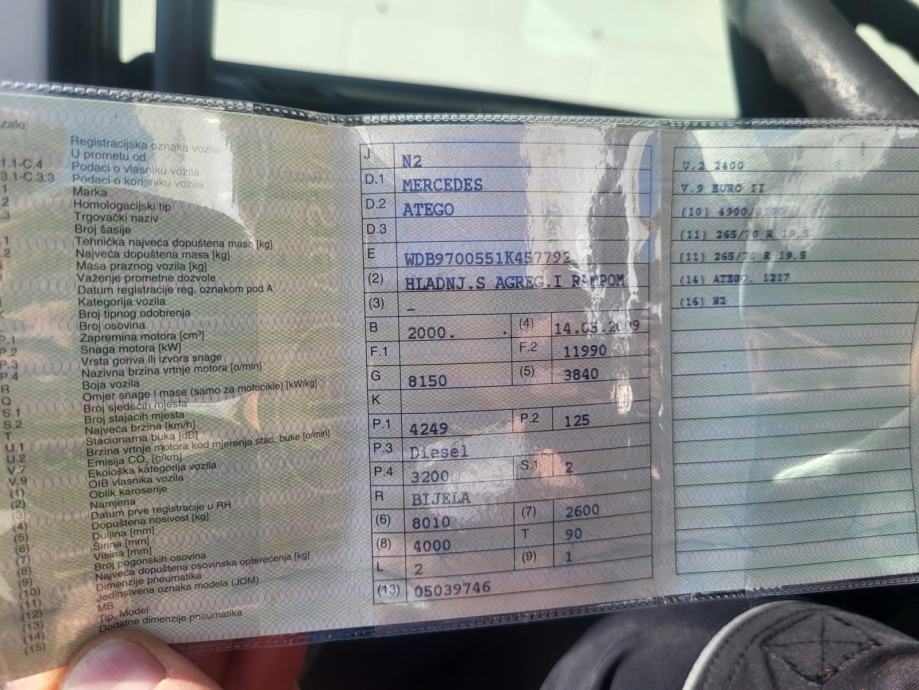 zalo:
Registracijska oznaka vozila
U prometu od
1.1-C.4 Podaci o vlasniku vozila
3.1-C.3.3 Podaci o korisniku vozila
Marka
Homologacijski tip
Trgovački naziv
Broj šasije
Tehnička najveća dopuštena masa [kg]
Najveća dopuštena masa [kg]
Masa praznog vozila [kg]
Važenje prometne dozvole
Datum registracije reg. oznakom pod A
Kategorija vozila
Broj tipnog odobrenja
Broj osovina
P.1 Zapremina motora [cm³]
P.2 Snaga motora [kW]
P.3 Vrsta goriva ili izvora snage
P.4 Nazivna brzina vrtnje motora [o/min]
R Boja vozila
Q Omjer snage i mase (samo za motocikle) [kW/kg]
S.1 Broj sjedećih mjesta
S.2 Broj stajaćih mjesta
T Najveća brzina [km/h]
U.1 Stacionarna buka [dB]
U.2 Brzina vrtnje motora kod mjerenja stac. buke [o/min]
V.7 Emisija CO₂ [g/km]
V.9 Ekološka kategorija vozila
(1) OIB vlasnika vozila
(2) Oblik karoserije
(3) Namjena
(4) Datum prve registracije u RH
(5) Dopuštena nosivost [kg]
(6) Duljina [mm]
(7) Širina [mm]
(8) Visina [mm]
(9) Broj pogonskih osovina
(10) Najveća dopuštena osovinska opterećenja [kg]
(11) Dimenzije pneumatika
(12) Jedinstvena oznaka modela (JOM)
(13) MB
(14) Tip, Model
(15) Dodatne dimenzije pneumatika
J N2
D.1 MERCEDES
D.2 ATEGO
D.3
E WDB9700551K457793
(2) HLADNJ.S AGREG.I RAMPOM
(3) –
B 2000. . (4) 14.05.2009
F.1 F.2 11990
G 8150 (5) 3840
K
P.1 4249 P.2 125
P.3 Diesel
P.4 3200 S.1 2
R BIJELA
(6) 8010 (7) 2600
(8) 4000 T 90
L 2 (9) 1
(13) 05039746
U.2 2400
V.9 EURO II
(10) 4900/
(11) 265/70 R 19.5
(11) 265/70 R 19.5
(14) ATEGO. 1217
(16) N2